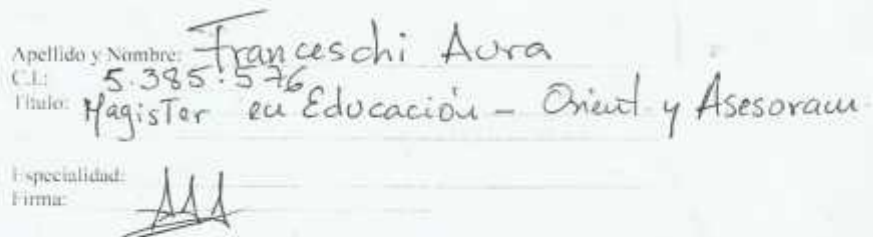 Apellido y Nombre: Franceschi Aura
C.I.: 5.385.576
Título: Magister en Educación - Orient y Asesoram.
Especialidad:
Firma: